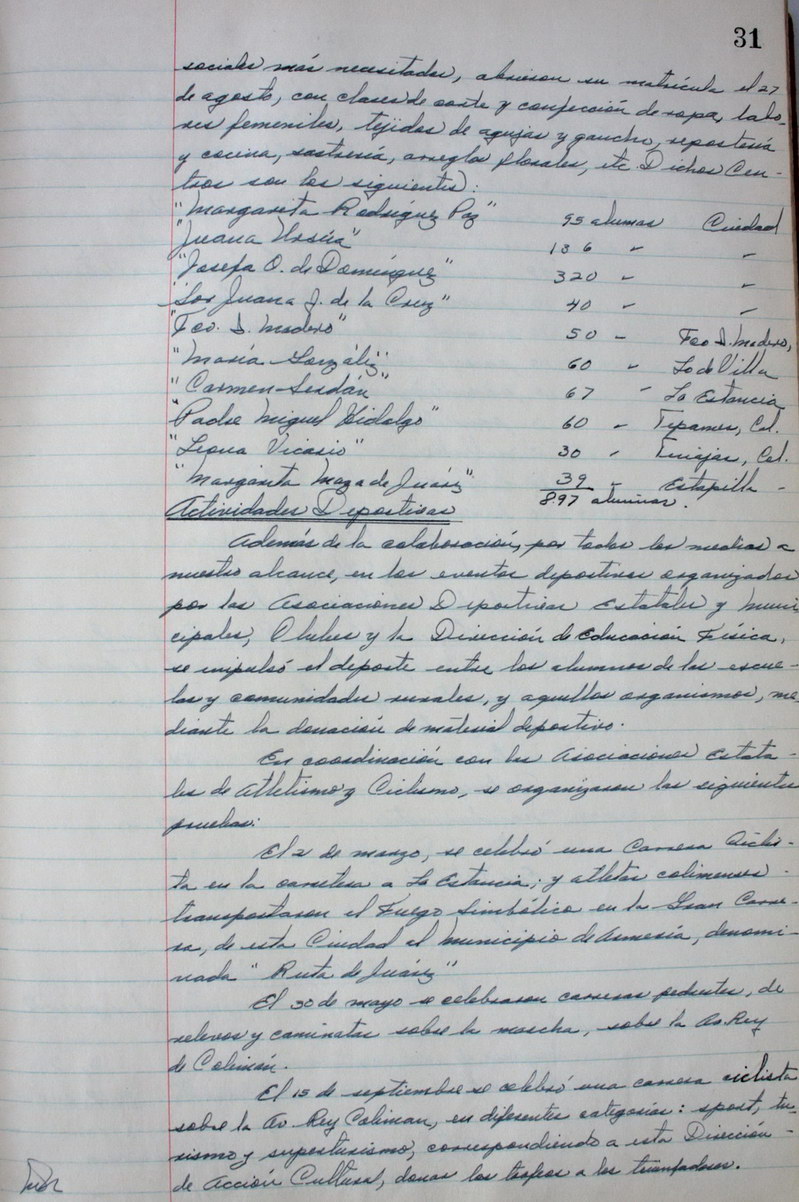 31
sociales más necesitados, abrieron su matrícula el 27
de agosto, con clases de corte y confección de ropa, labo-
res femeniles, tejidos de agujas y gancho, repostería
y cocina, sastrería, arreglos florales, etc Dichos Cen-
tros son los siguientes:
"Margarita Rodríguez Paz" 95 alumnas Ciudad
"Juana Ursúa" 136 " "
"Josefa O. de Domínguez" 320 " "
"Sor Juana I. de la Cruz" 40 " "
"Fco. I. Madero" 50 " Fco I. Madero,
"María González" 60 " Lo de Villa
"Carmen Serdán" 67 " La Estancia
"Padre Miguel Hidalgo" 60 " Tepames, Col.
"Leona Vicario" 30 " Tinajas, Col.
"Margarita Maza de Juárez" 39 " Estapilla -
897 alumnas.
Actividades Deportivas
Además de la colaboración, por todos los medios a
nuestro alcance, en los eventos deportivos organizados
por las Asociaciones Deportivas Estatales y Muni
cipales, Clubes y la Dirección de Educación Física,
se impulsó el deporte entre los alumnos de las escue-
las y comunidades rurales, y aquellos organismos, me-
diante la donación de material deportivo.
En coordinación con las Asociaciones Estata-
les de Atletismo y Ciclismo, se organizaron las siguientes
pruebas:
El 2 de marzo, se celebró una Carrera Ciclis-
ta en la carretera a La Estancia; y atletas colimenses -
transportaron el Fuego Simbólico en la Gran Carre-
ra, de esta Ciudad al Municipio de Armería, denomi-
nada "Ruta de Juárez"
El 30 de mayo se celebraron carreras pedestres, de
relevos y caminatas sobre la marcha, sobre la Av. Rey
de Colimán.
El 15 de septiembre se celebró una carrera ciclista
sobre la Av. Rey Coliman, en diferentes categorías: sport, tu-
rismo y superturismo, correspondiendo a esta Dirección -
de Acción Cultural, donar los trofeos a los triunfadores.